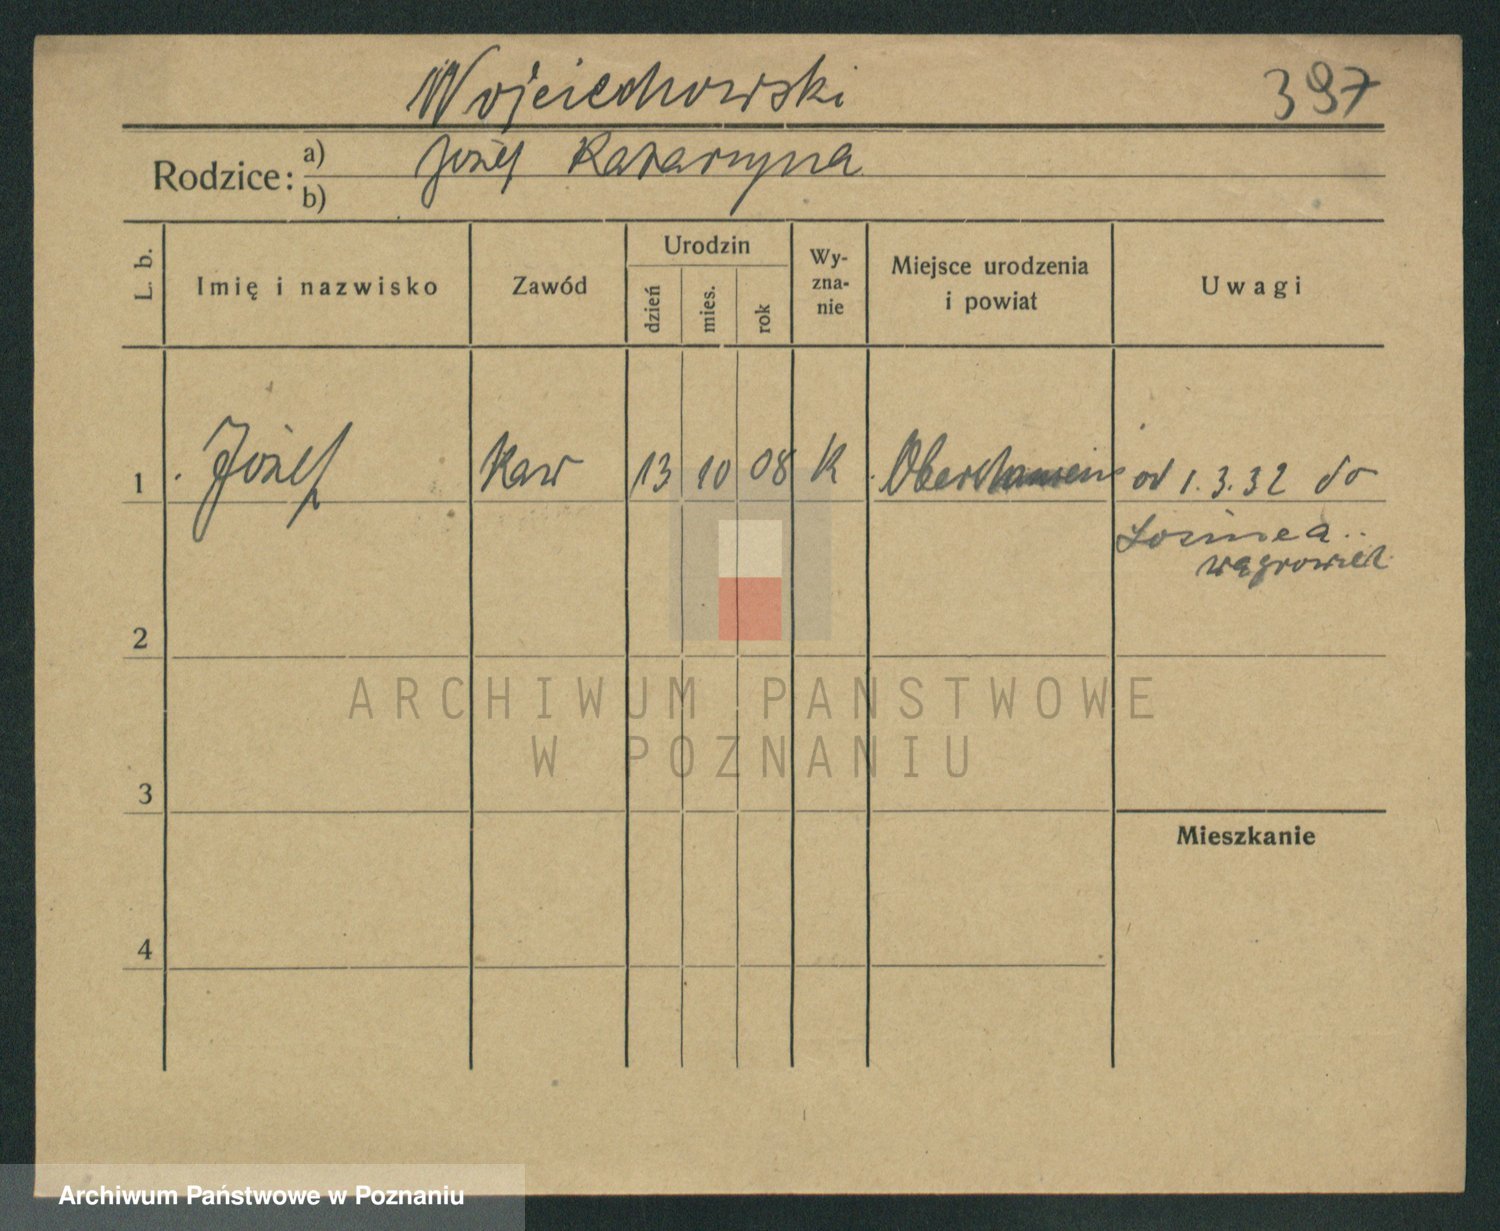 Wojciechowski 397
Rodzice: a) Józef Katarzyna
b)
L. b. Imię i nazwisko Zawód Urodzin dzień mies. rok Wy-zna-nie Miejsce urodzenia i powiat Uwagi
1 Józef Kaw 13 10 08 K od 1.3.32 do
Wągrowiec
2
3
Mieszkanie
4
ARCHIWUM PAŃSTWOWE
W POZNANIU
Archiwum Państwowe w Poznaniu